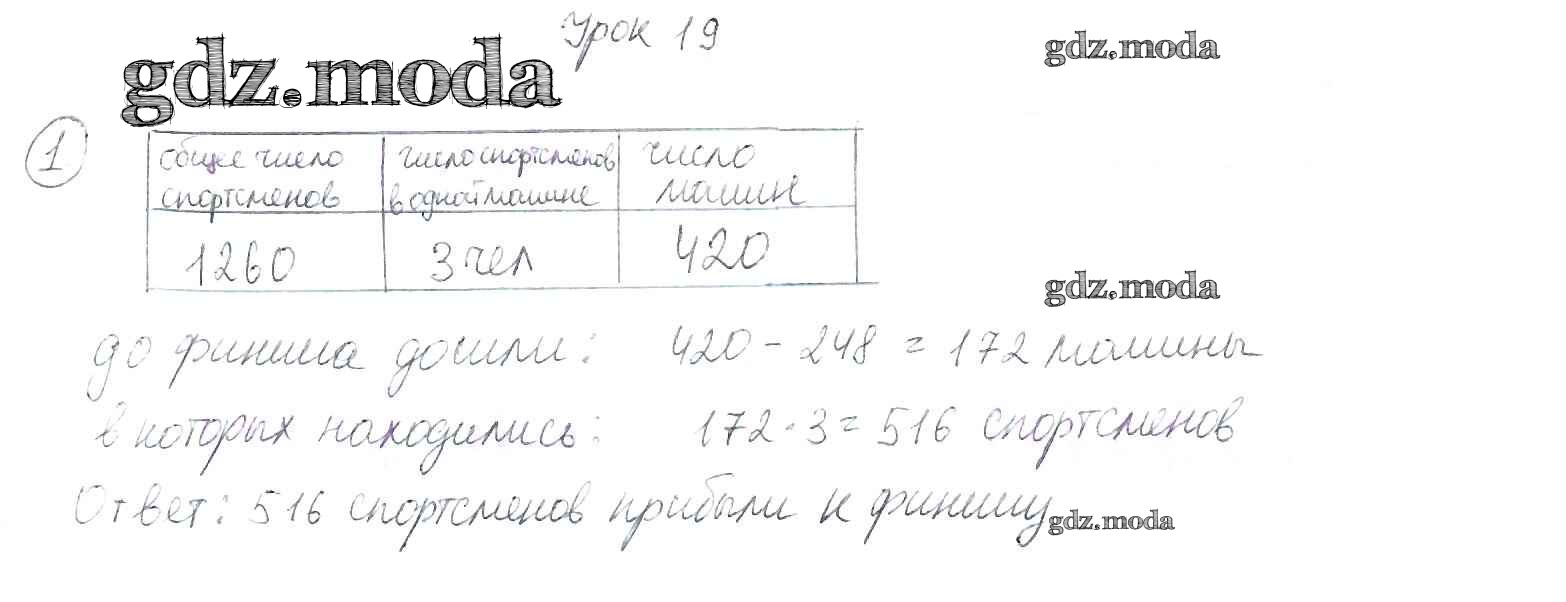 Урок 19
gdz.moda
gdz.moda
1
общее число спортсменов | число спортсменов в одной машине | число машин
1260 | 3 чел | 420
gdz.moda
до финиша дошли: 420 - 248 = 172 машины
в которых находились: 172 · 3 = 516 спортсменов
Ответ: 516 спортсменов прибыли к финишу
gdz.moda